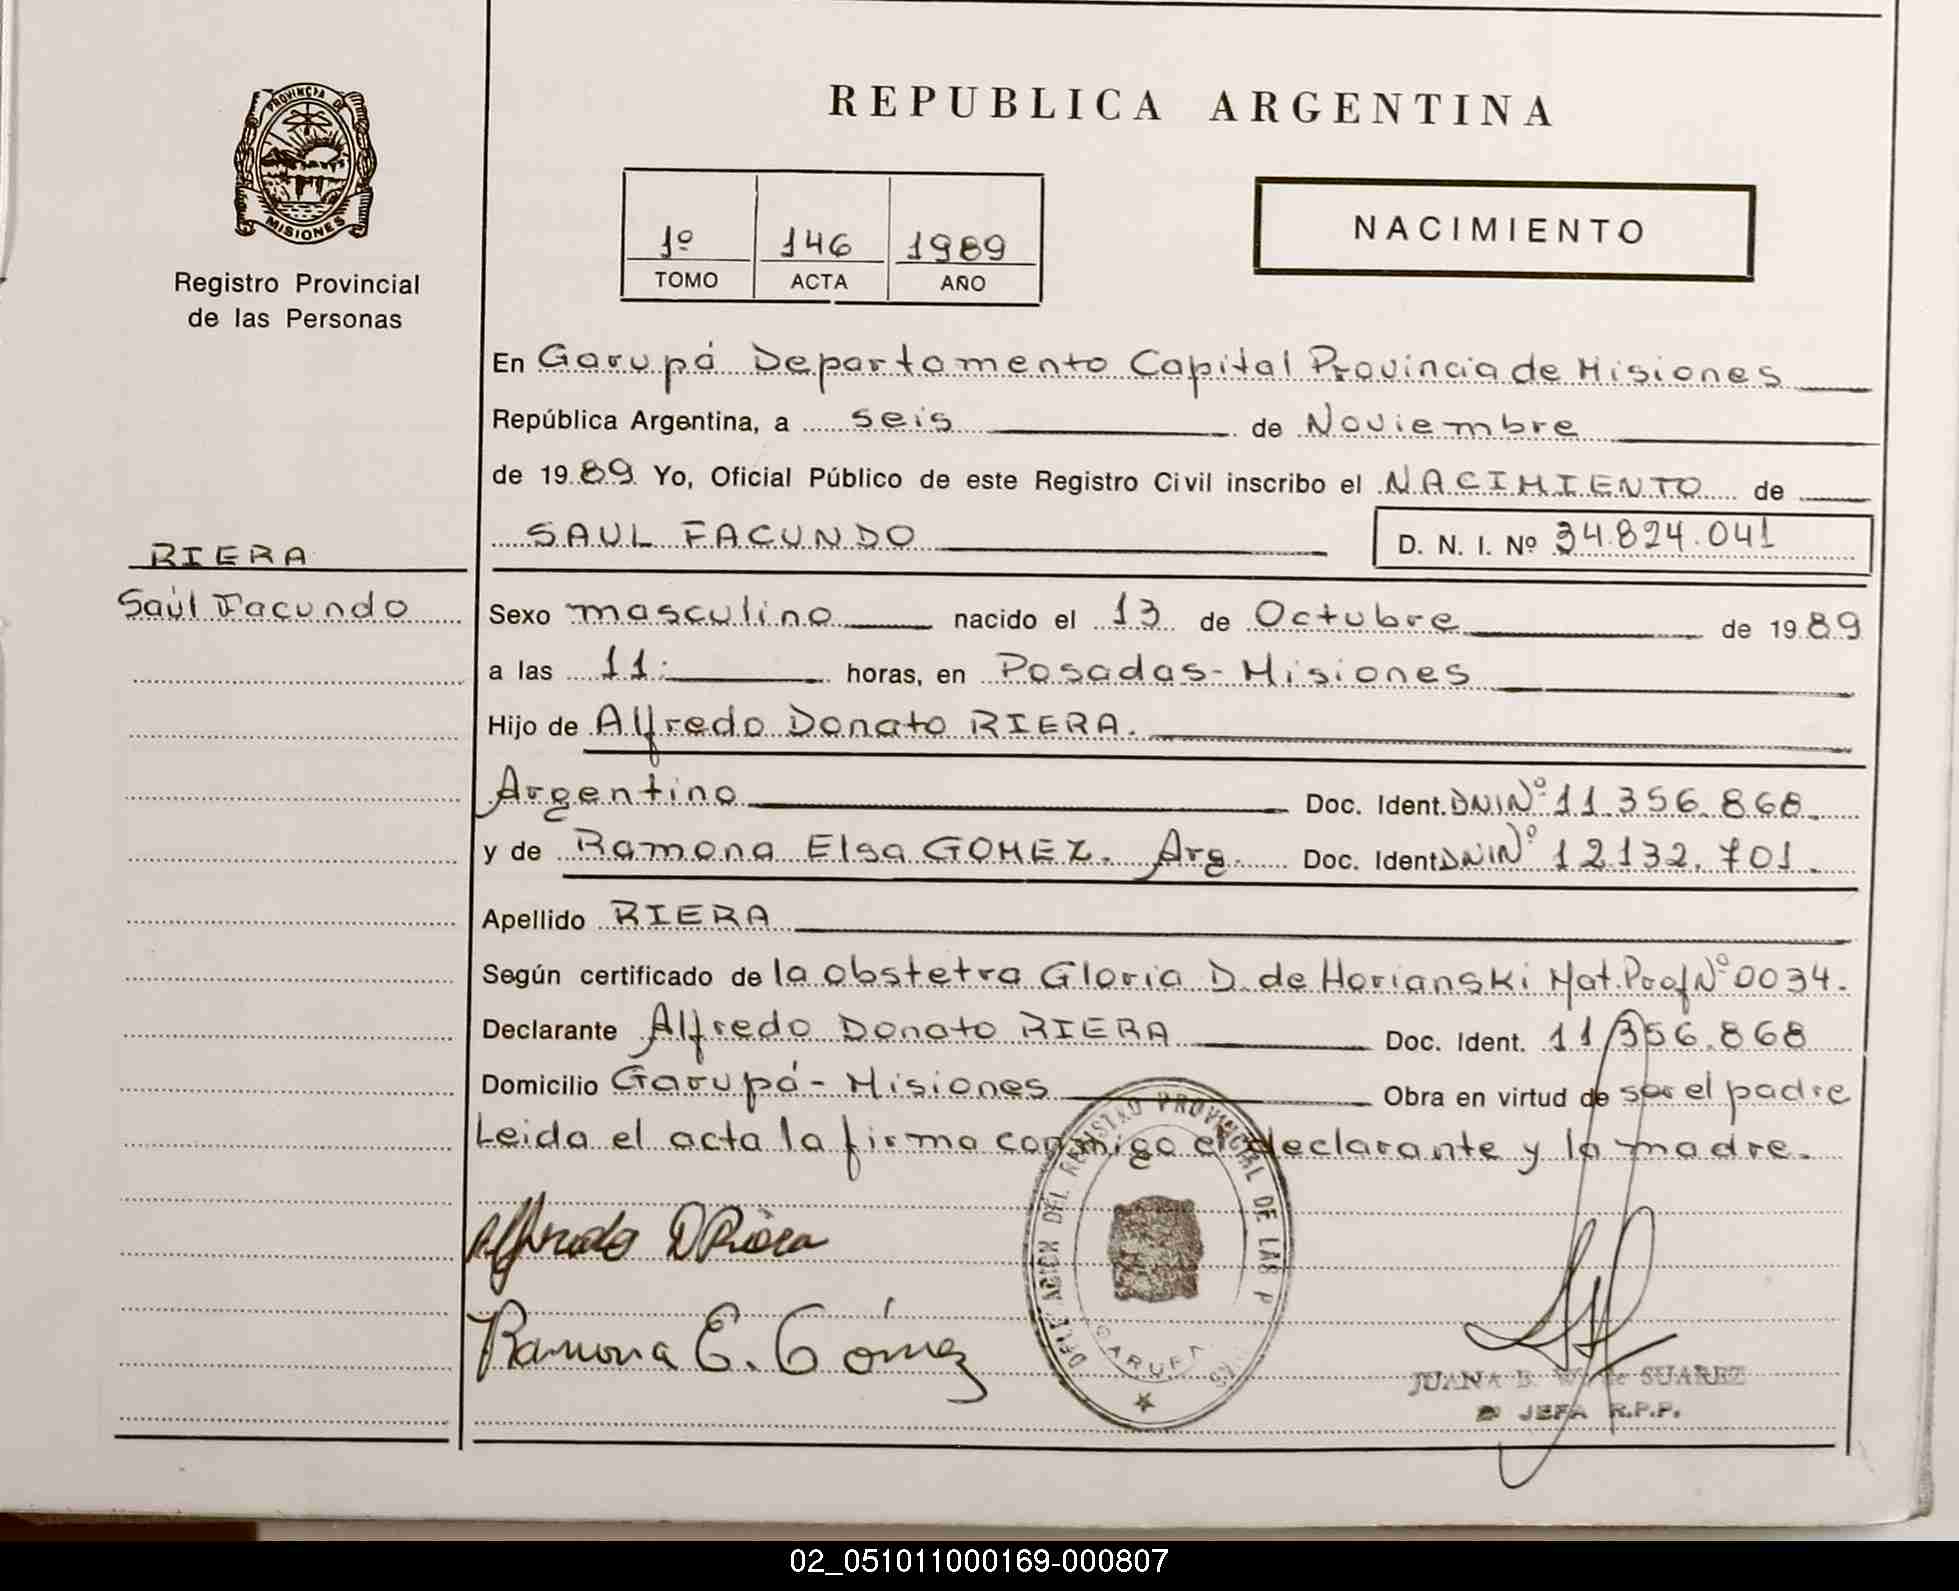 PROVINCIA DE
MISIONES
Registro Provincial
de las Personas
REPUBLICA ARGENTINA
1º 146 1989
TOMO ACTA AÑO
NACIMIENTO
En Garupá Departamento Capital Provincia de Misiones
República Argentina, a seis de Noviembre
de 1989 Yo, Oficial Público de este Registro Civil inscribo el NACIMIENTO de
SAUL FACUNDO D. N. I. Nº 34.824.041
RIERA
Saúl Facundo
Sexo masculino nacido el 13 de Octubre de 1989
a las 11: horas, en Posadas - Misiones
Hijo de Alfredo Donato RIERA.
Argentino Doc. Ident. DNI Nº 11.356.868.
y de Ramona Elsa GOMEZ. Arg. Doc. Ident DNI Nº 12.132.701.
Apellido RIERA
Según certificado de la obstetra Gloria D. de Horianski Mat. Prof Nº 0034.
Declarante Alfredo Donato RIERA Doc. Ident. 11.356.868
Domicilio Garupá - Misiones Obra en virtud de ser el padre
Leida el acta la firma conmigo el declarante y la madre.
Alfredo D Riera
Ramona E. Gómez
DEL REGISTRO PROVINCIAL DE LAS P
GARUPA
JUANA B. de SUAREZ
JEFA R.P.P.
02_051011000169-000807